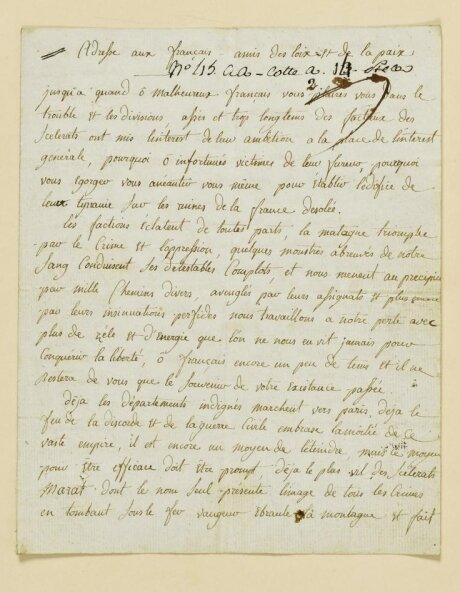 Adresse aux français amis des loix et de la paix.
N° 15.
2.
jusqu'a quand ô Malheureux français vous plairez vous dans le
trouble et les divisions, assez et trop longtems des factieux des
Scélerats ont mis linterest de leur ambition a la place de linterest
generale, pourquoi ô infortunés victimes de leur fureur, pourquoi
vous egorger vous anéantir vous même pour établir lédifice de
leur tyranie sur les ruines de la france desolée.
Les factions éclatent de toutes parts, la matagne triomphe
par le Crime et loppression, quelques monstres abreuvés de notre
Sang Conduisent ses détestables Complots, et nous menent au précipice
par mille Chemins divers, aveuglés par leurs assignats et plus encore
par leurs insinuations perfides nous travaillons a notre perte avec
plus de zéle et d'energie que l'on ne nous en vit jamais pour
Conquérir la liberté, ô français encore un peu de tems et il ne
Restera de vous que le Souvenir de votre existance passée.
Déja les départements indignés marchent vers paris, déja le
feu de la discorde et de la guerre Civile embrase la moitié de ce
vaste empire, il est encore un moyen de léteindre, mais ce moyen
pour être efficace doit être prompt. déja le plus vil des Scélerats
Marat dont le nom seul présente limage de tous les Crimes
en tombant sous le fer vangeur ebranle la montagne et fait